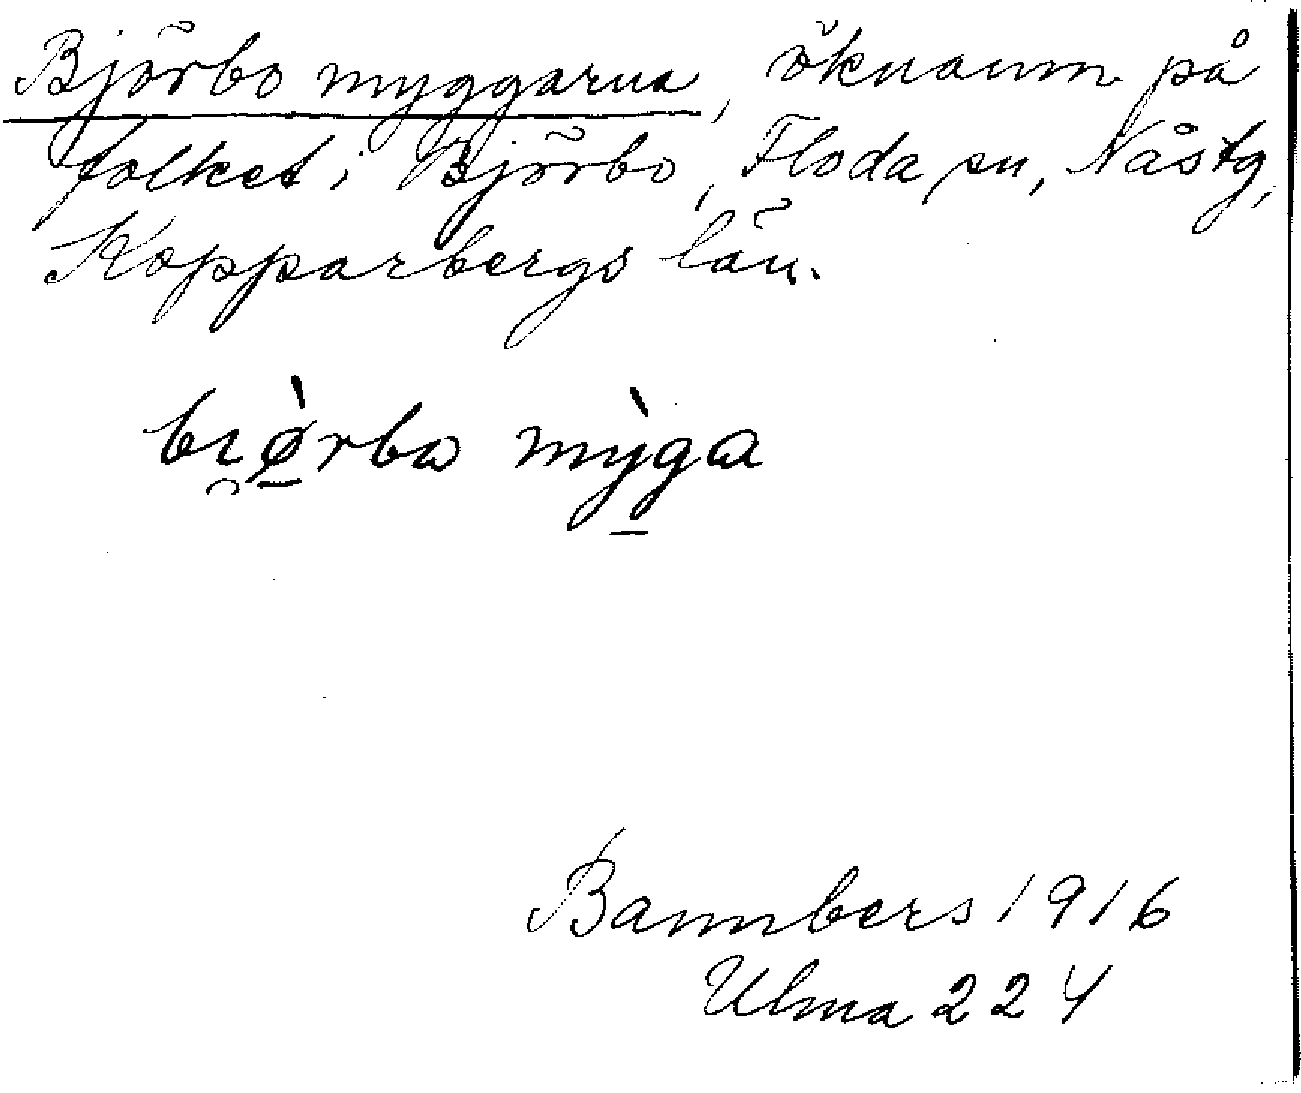 Björbo myggarna, öknamn på
folket i Björbo, Floda sn, Nåstg,
Kopparbergs län.
bɪ̯ø̠̀rbɷ mỳ̠ga
Bannbers 1916
Ulma 224